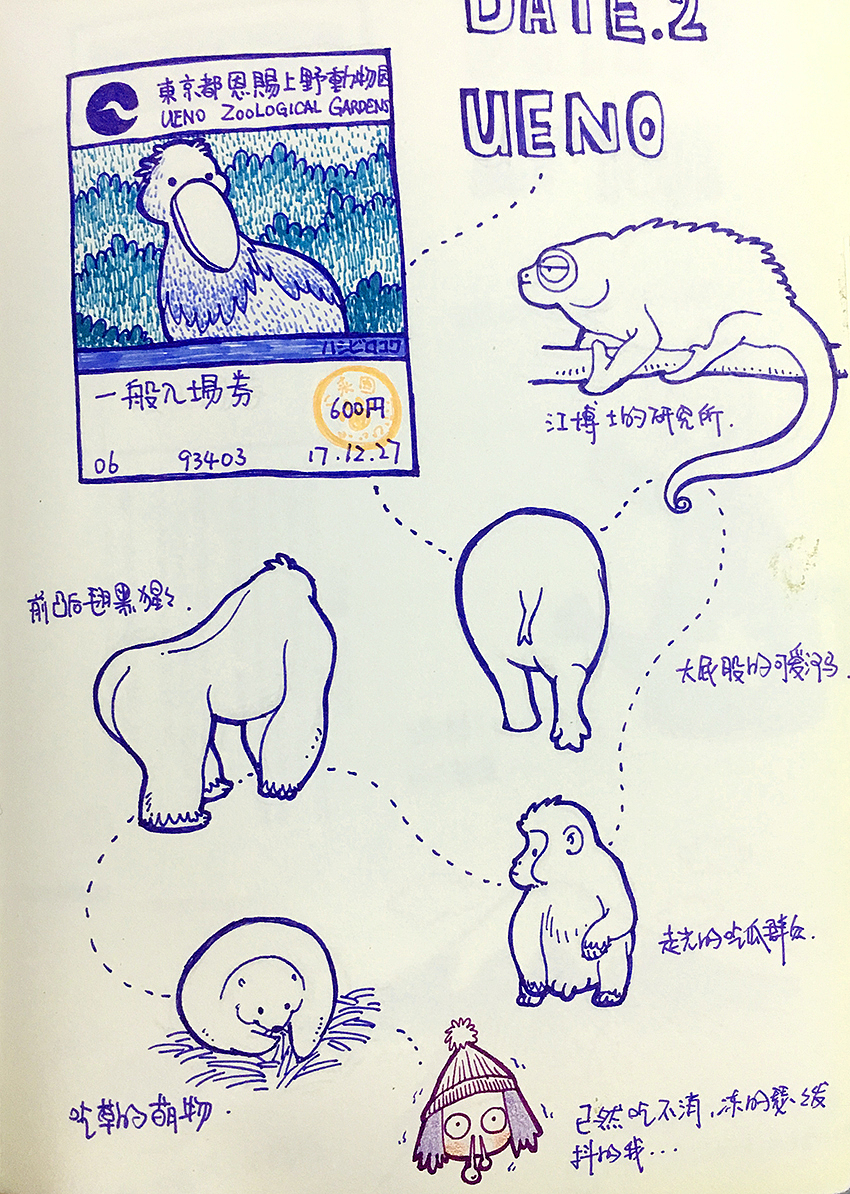 DATE.2
UENO
東京都恩賜上野動物园
UENO ZOOLOGICAL GARDENS
ハシビロコウ
一般入場券
600円
06 93403 17.12.27
江博士的研究所.
前凸后翘黑猩猩.
大屁股的可爱河马.
走光的吃瓜群众.
吃草的萌物.
已然吃不消,冻的瑟瑟发
抖的我...